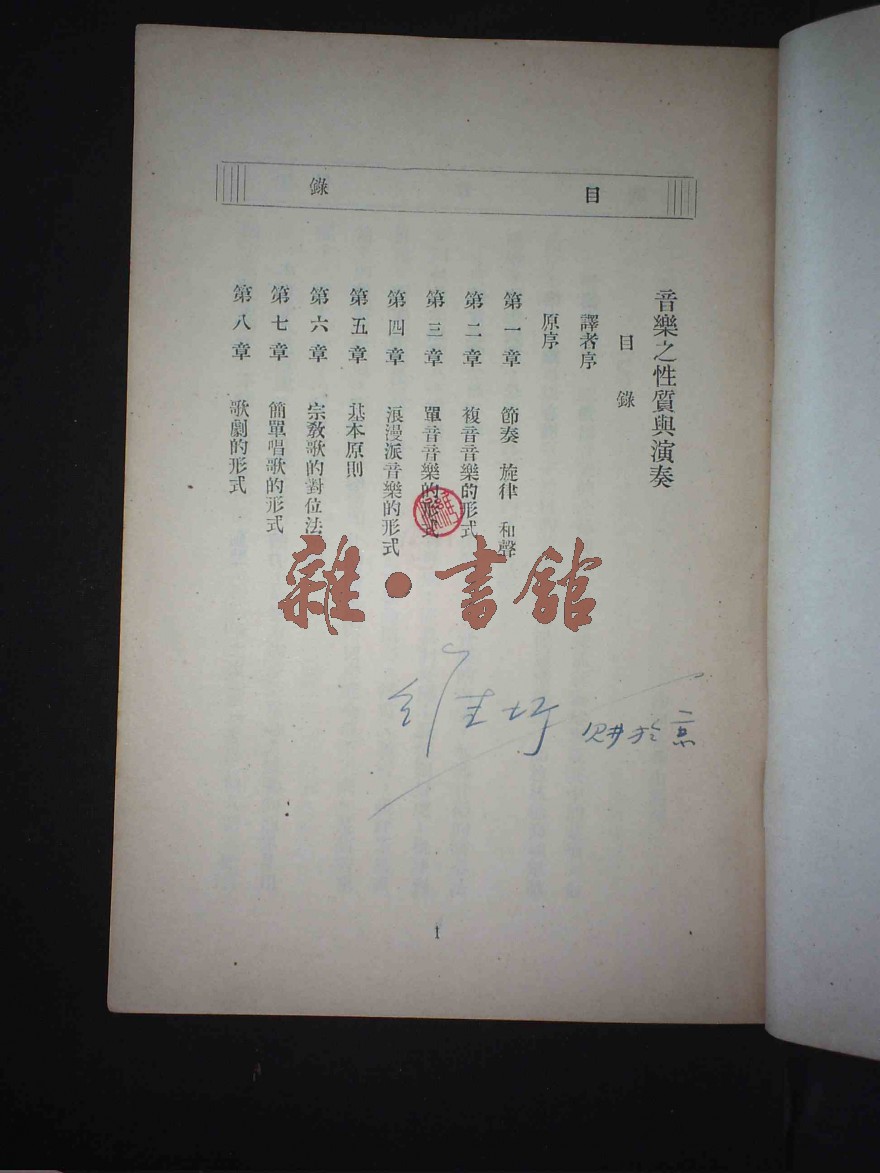 目錄
音樂之性質與演奏
目錄
譯者序
原序
第一章 節奏 旋律 和聲
第二章 複音音樂的形式
第三章 單音音樂的形式
第四章 浪漫派音樂的形式
第五章 基本原則
第六章 宗教歌的對位法
第七章 簡單唱歌的形式
第八章 歌劇的形式
雜·書館
購於京
1